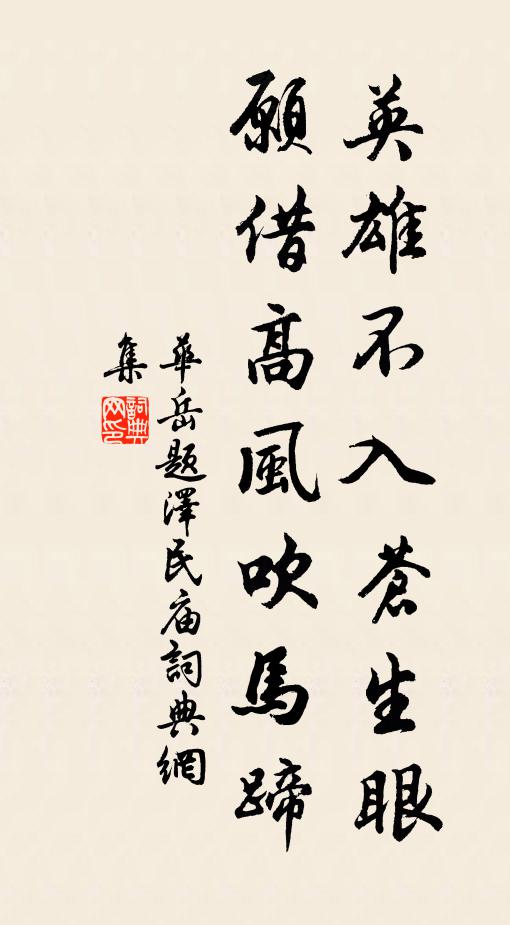 英雄不入蒼生眼
願借高風吹馬蹄
華岳題澤民庙詞典網
集
詞典
网印